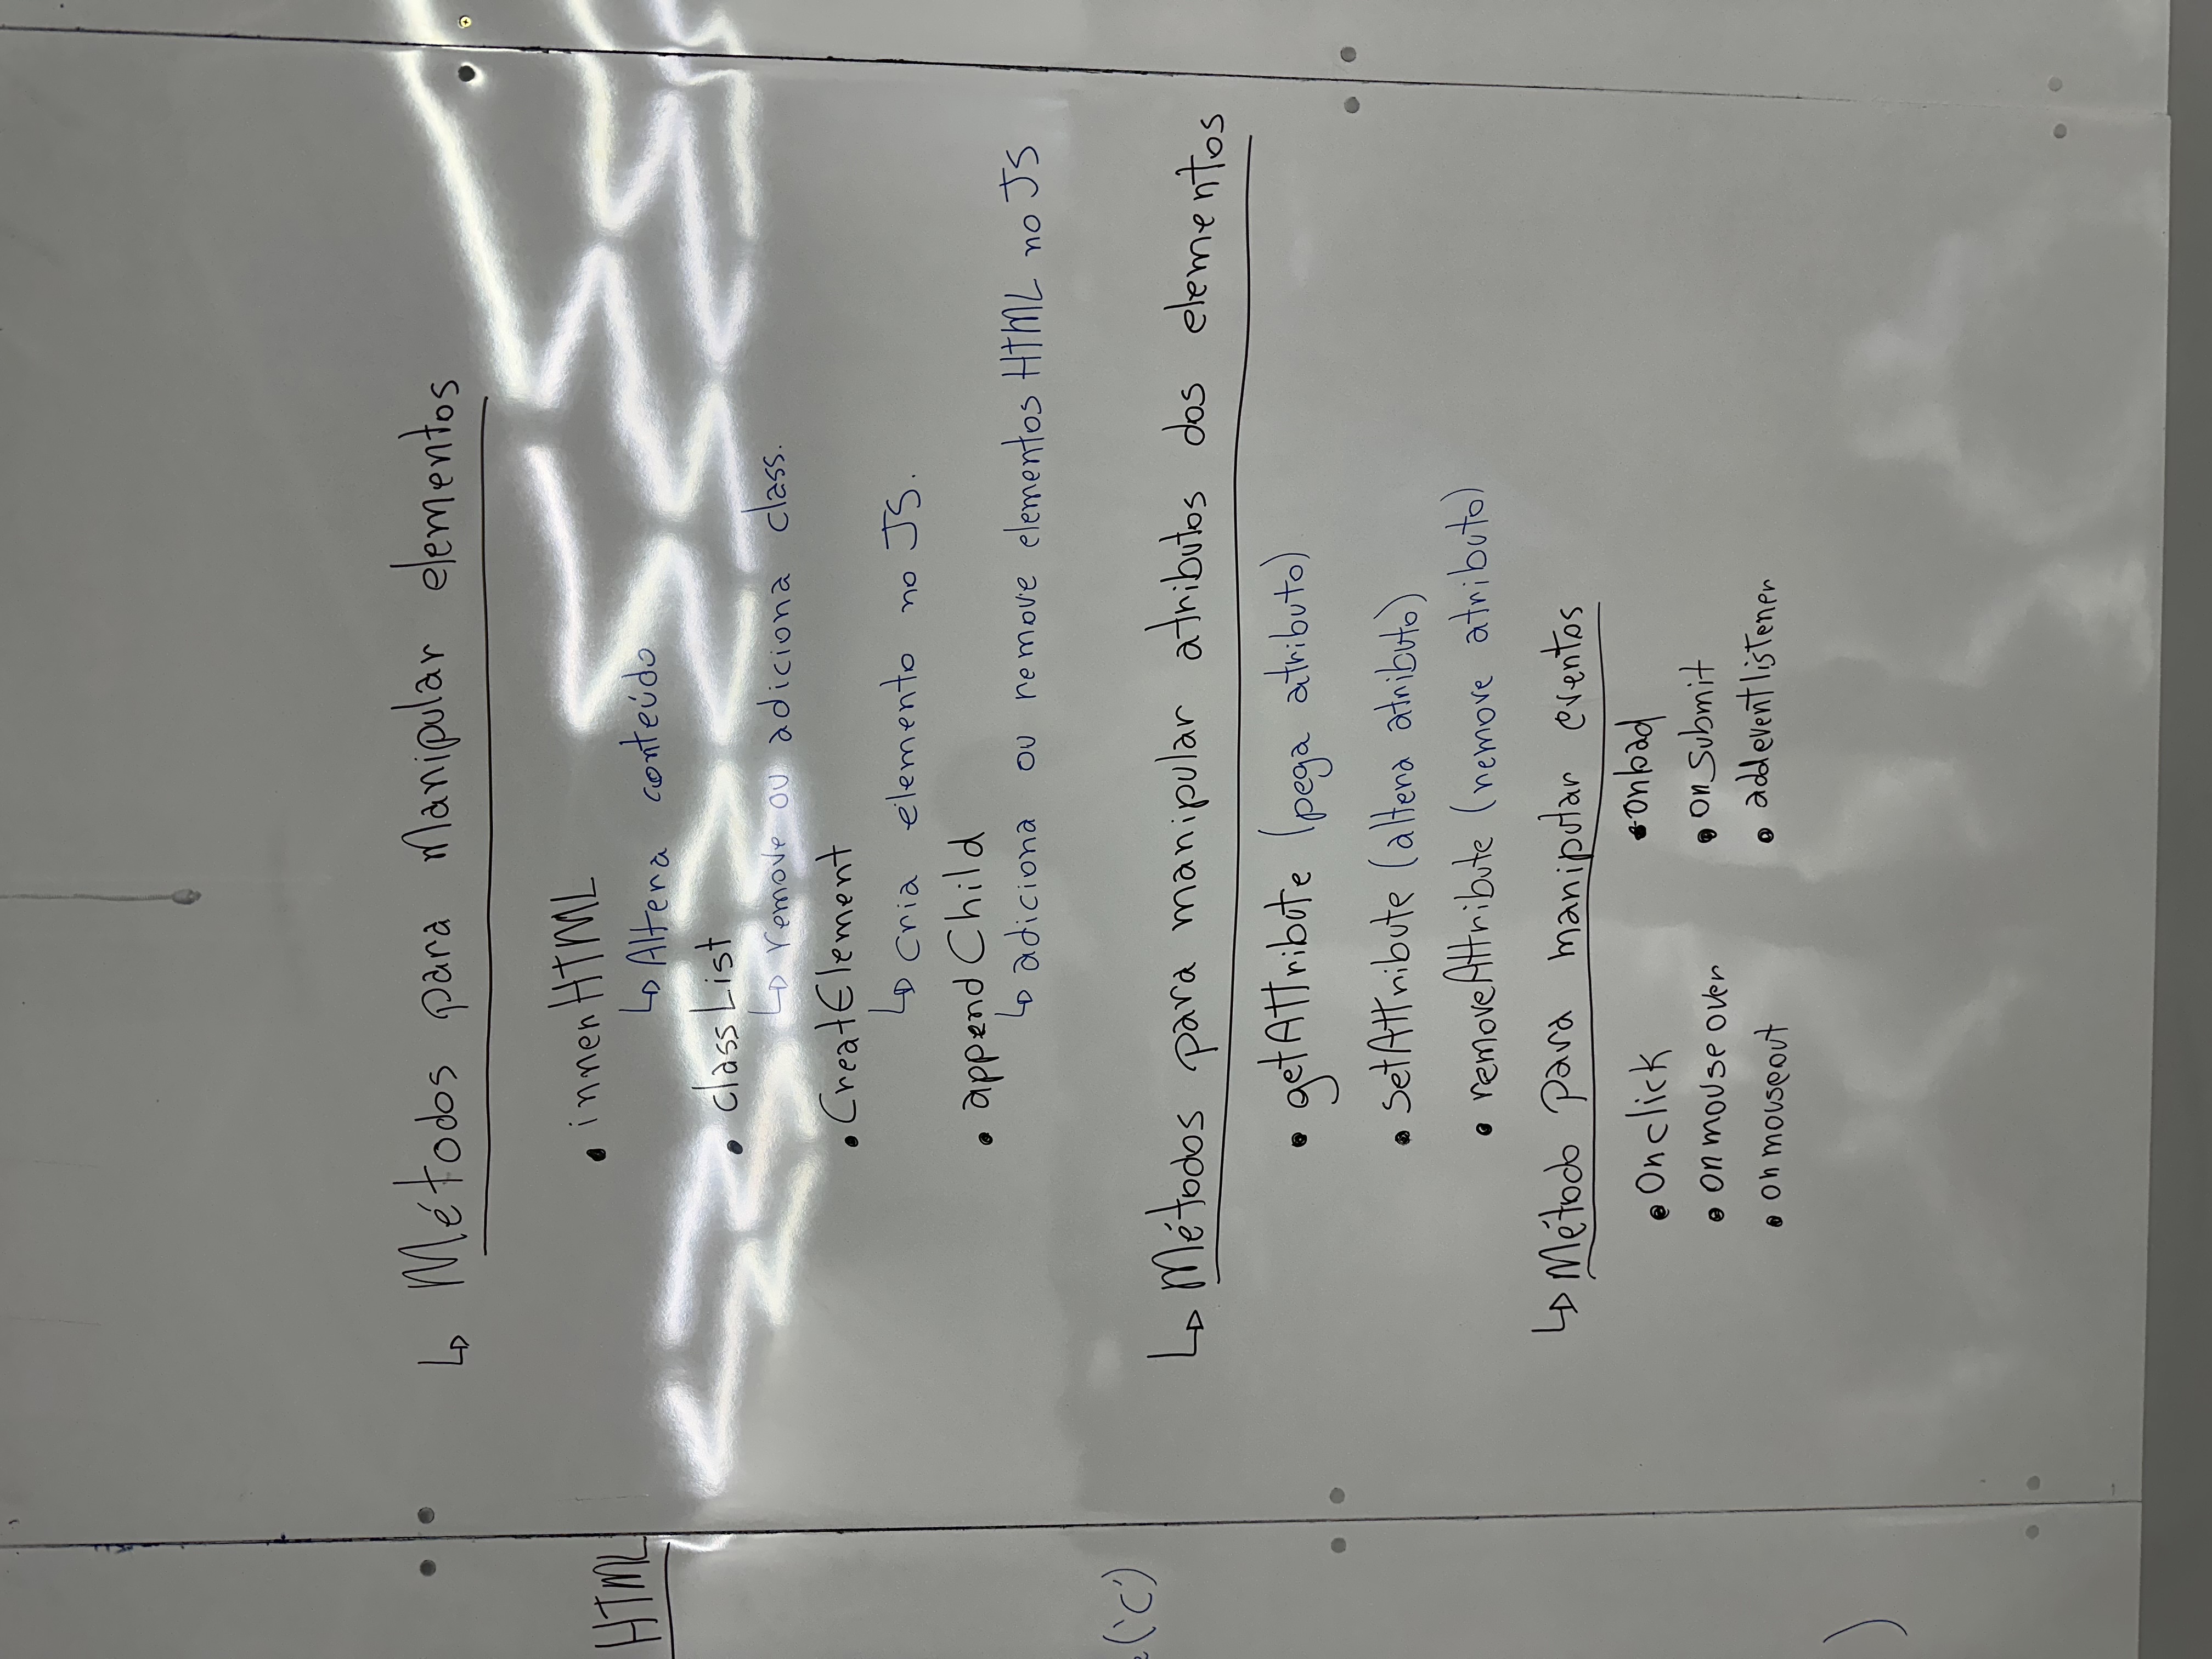 ↳ Métodos para Manipular elementos
• innerHTML
↳ Altera conteúdo
HTML
• classList
↳ remove ou adiciona class.
• CreatElement
↳ cria elemento no JS.
• appendChild
↳ adiciona ou remove elementos HTML no JS
('C')
↳ Métodos para manipular atributos dos elementos
• getAttribute (pega atributo)
• setAttribute (altera atributo)
• removeAttribute (remove atributo)
↳ Método para manipular eventos
• Onclick
• onload
• onmouseover
• onsubmit
• onmouseout
• addeventlistener
)